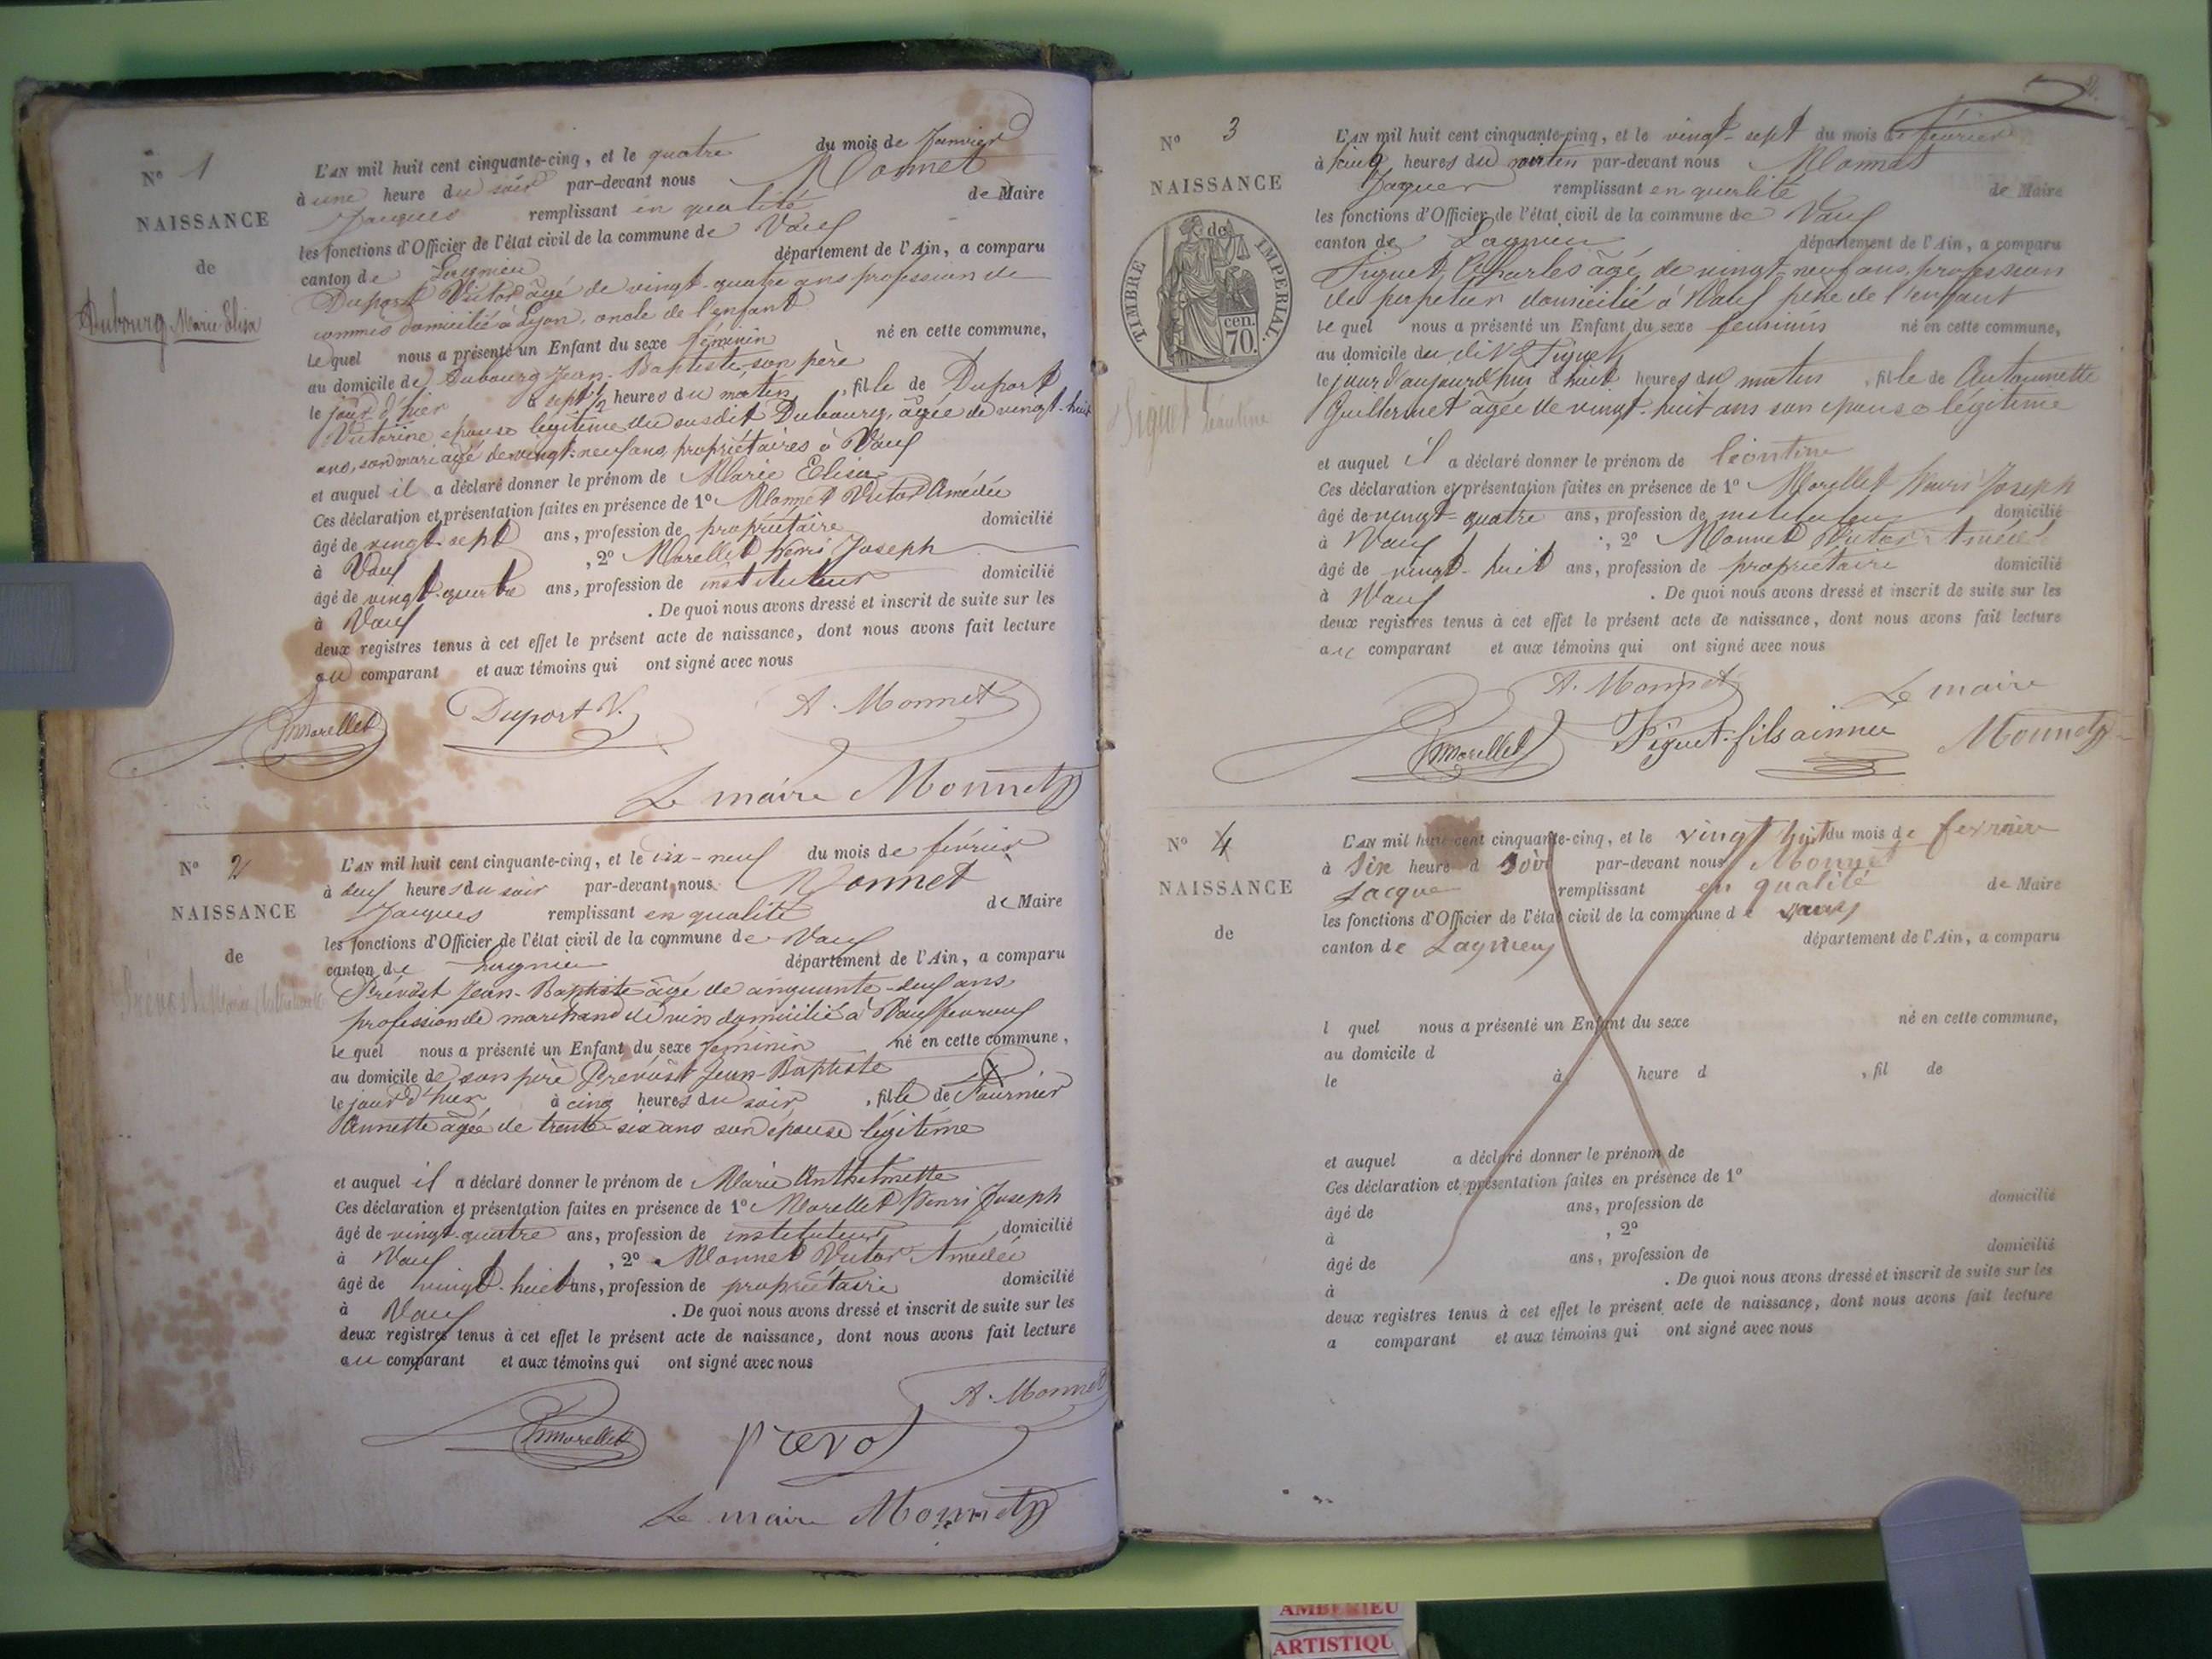 Nº 1
NAISSANCE
de
Dubourg Marie Elisa
L'AN mil huit cent cinquante-cinq, et le quatre du mois de Janvier
à une heure du soir par-devant nous Monnet
Jacques remplissant en qualité de Maire
les fonctions d'Officier de l'état civil de la commune de Vaux
canton de Lagnieu département de l'Ain, a comparu
Duport Victor âgé de vingt-quatre ans profession de
commis domicilié à Lyon, oncle de l'enfant
le quel nous a présenté un Enfant du sexe féminin né en cette commune,
au domicile de Dubourg Jean-Baptiste son père
le jour d'hier à sept ½ heures du matin, fille de Duport
Victorine, épouse légitime du susdit Dubourg, âgée de vingt-huit
ans, son mari âgé de vingt-neuf ans, propriétaires à Vaux
et auquel il a déclaré donner le prénom de Marie Elisa
Ces déclaration et présentation faites en présence de 1º Monnet Victor Amédée
âgé de vingt-sept ans, profession de propriétaire domicilié
à Vaux, 2º Morellet Henri Joseph
âgé de vingt-quatre ans, profession de instituteur domicilié
à Vaux. De quoi nous avons dressé et inscrit de suite sur les
deux registres tenus à cet effet le présent acte de naissance, dont nous avons fait lecture
au comparant et aux témoins qui ont signé avec nous
Morellet Duport V. A. Monnet
Le maire Monnet
Nº 2
NAISSANCE
de
Prévost Marie Anthelmette
L'AN mil huit cent cinquante-cinq, et le dix-neuf du mois de février
à deux heures du soir par-devant nous Monnet
Jacques remplissant en qualité de Maire
les fonctions d'Officier de l'état civil de la commune de Vaux
canton de Lagnieu département de l'Ain, a comparu
Prévost Jean-Baptiste âgé de cinquante-deux ans
profession de marchand de vin domicilié à Vaux fevroux
le quel nous a présenté un Enfant du sexe féminin né en cette commune,
au domicile de son père Prévost Jean-Baptiste
le jour d'hier à cinq heures du soir, fille de Fournier
Annette âgée de trente-six ans son épouse légitime
et auquel il a déclaré donner le prénom de Marie Anthelmette
Ces déclaration et présentation faites en présence de 1º Morellet Henri Joseph
âgé de vingt-quatre ans, profession de instituteur domicilié
à Vaux, 2º Monnet Victor Amédée
âgé de vingt-huit ans, profession de propriétaire domicilié
à Vaux. De quoi nous avons dressé et inscrit de suite sur les
deux registres tenus à cet effet le présent acte de naissance, dont nous avons fait lecture
au comparant et aux témoins qui ont signé avec nous
A. Monnet
Morellet prevot
Le maire Monnet
2.
Nº 3
NAISSANCE
TIMBRE IMPERIAL.
de
cen.
70.
Piguet Léontine
L'AN mil huit cent cinquante-cinq, et le vingt-sept du mois de février
à cinq heures du par-devant nous Monnet
Jaques remplissant en qualité de Maire
les fonctions d'Officier de l'état civil de la commune de Vaux
canton de Lagnieu département de l'Ain, a comparu
Piguet Charles âgé de vingt-neuf ans, profession
de domicilié à Vaux père de l'enfant
le quel nous a présenté un Enfant du sexe feminin né en cette commune,
au domicile du dit Piguet
le jour d'aujourd'hui à huit heures du matin, fille de Antoinette
Guillermet âgée de vingt-huit ans son épouse légitime
et auquel il a déclaré donner le prénom de léontine
Ces déclaration et présentation faites en présence de 1º Morellet Henri Joseph
âgé de vingt-quatre ans, profession de instituteur domicilié
à Vaux, 2º Monnet Victor Amédé
âgé de vingt-huit ans, profession de propriétaire domicilié
à Vaux. De quoi nous avons dressé et inscrit de suite sur les
deux registres tenus à cet effet le présent acte de naissance, dont nous avons fait lecture
au comparant et aux témoins qui ont signé avec nous
A. Monnet Le maire
Morellet Piguet fils ainnee Monnet
Nº 4
NAISSANCE
de
L'AN mil huit cent cinquante-cinq, et le vingt huit du mois de fevrier
à Six heure d soir par-devant nous Monnet
Jacque remplissant en qualité de Maire
les fonctions d'Officier de l'état civil de la commune de Vaux
canton de Lagnieu département de l'Ain, a comparu
l quel nous a présenté un Enfant du sexe né en cette commune,
au domicile d
le à heure d , fil de
et auquel a déclaré donner le prénom de
Ces déclaration et présentation faites en présence de 1º
âgé de ans, profession de domicilié
à , 2º
âgé de ans, profession de domicilié
à . De quoi nous avons dressé et inscrit de suite sur les
deux registres tenus à cet effet le présent acte de naissance, dont nous avons fait lecture
a comparant et aux témoins qui ont signé avec nous
AMBERIEU
ARTISTIQU